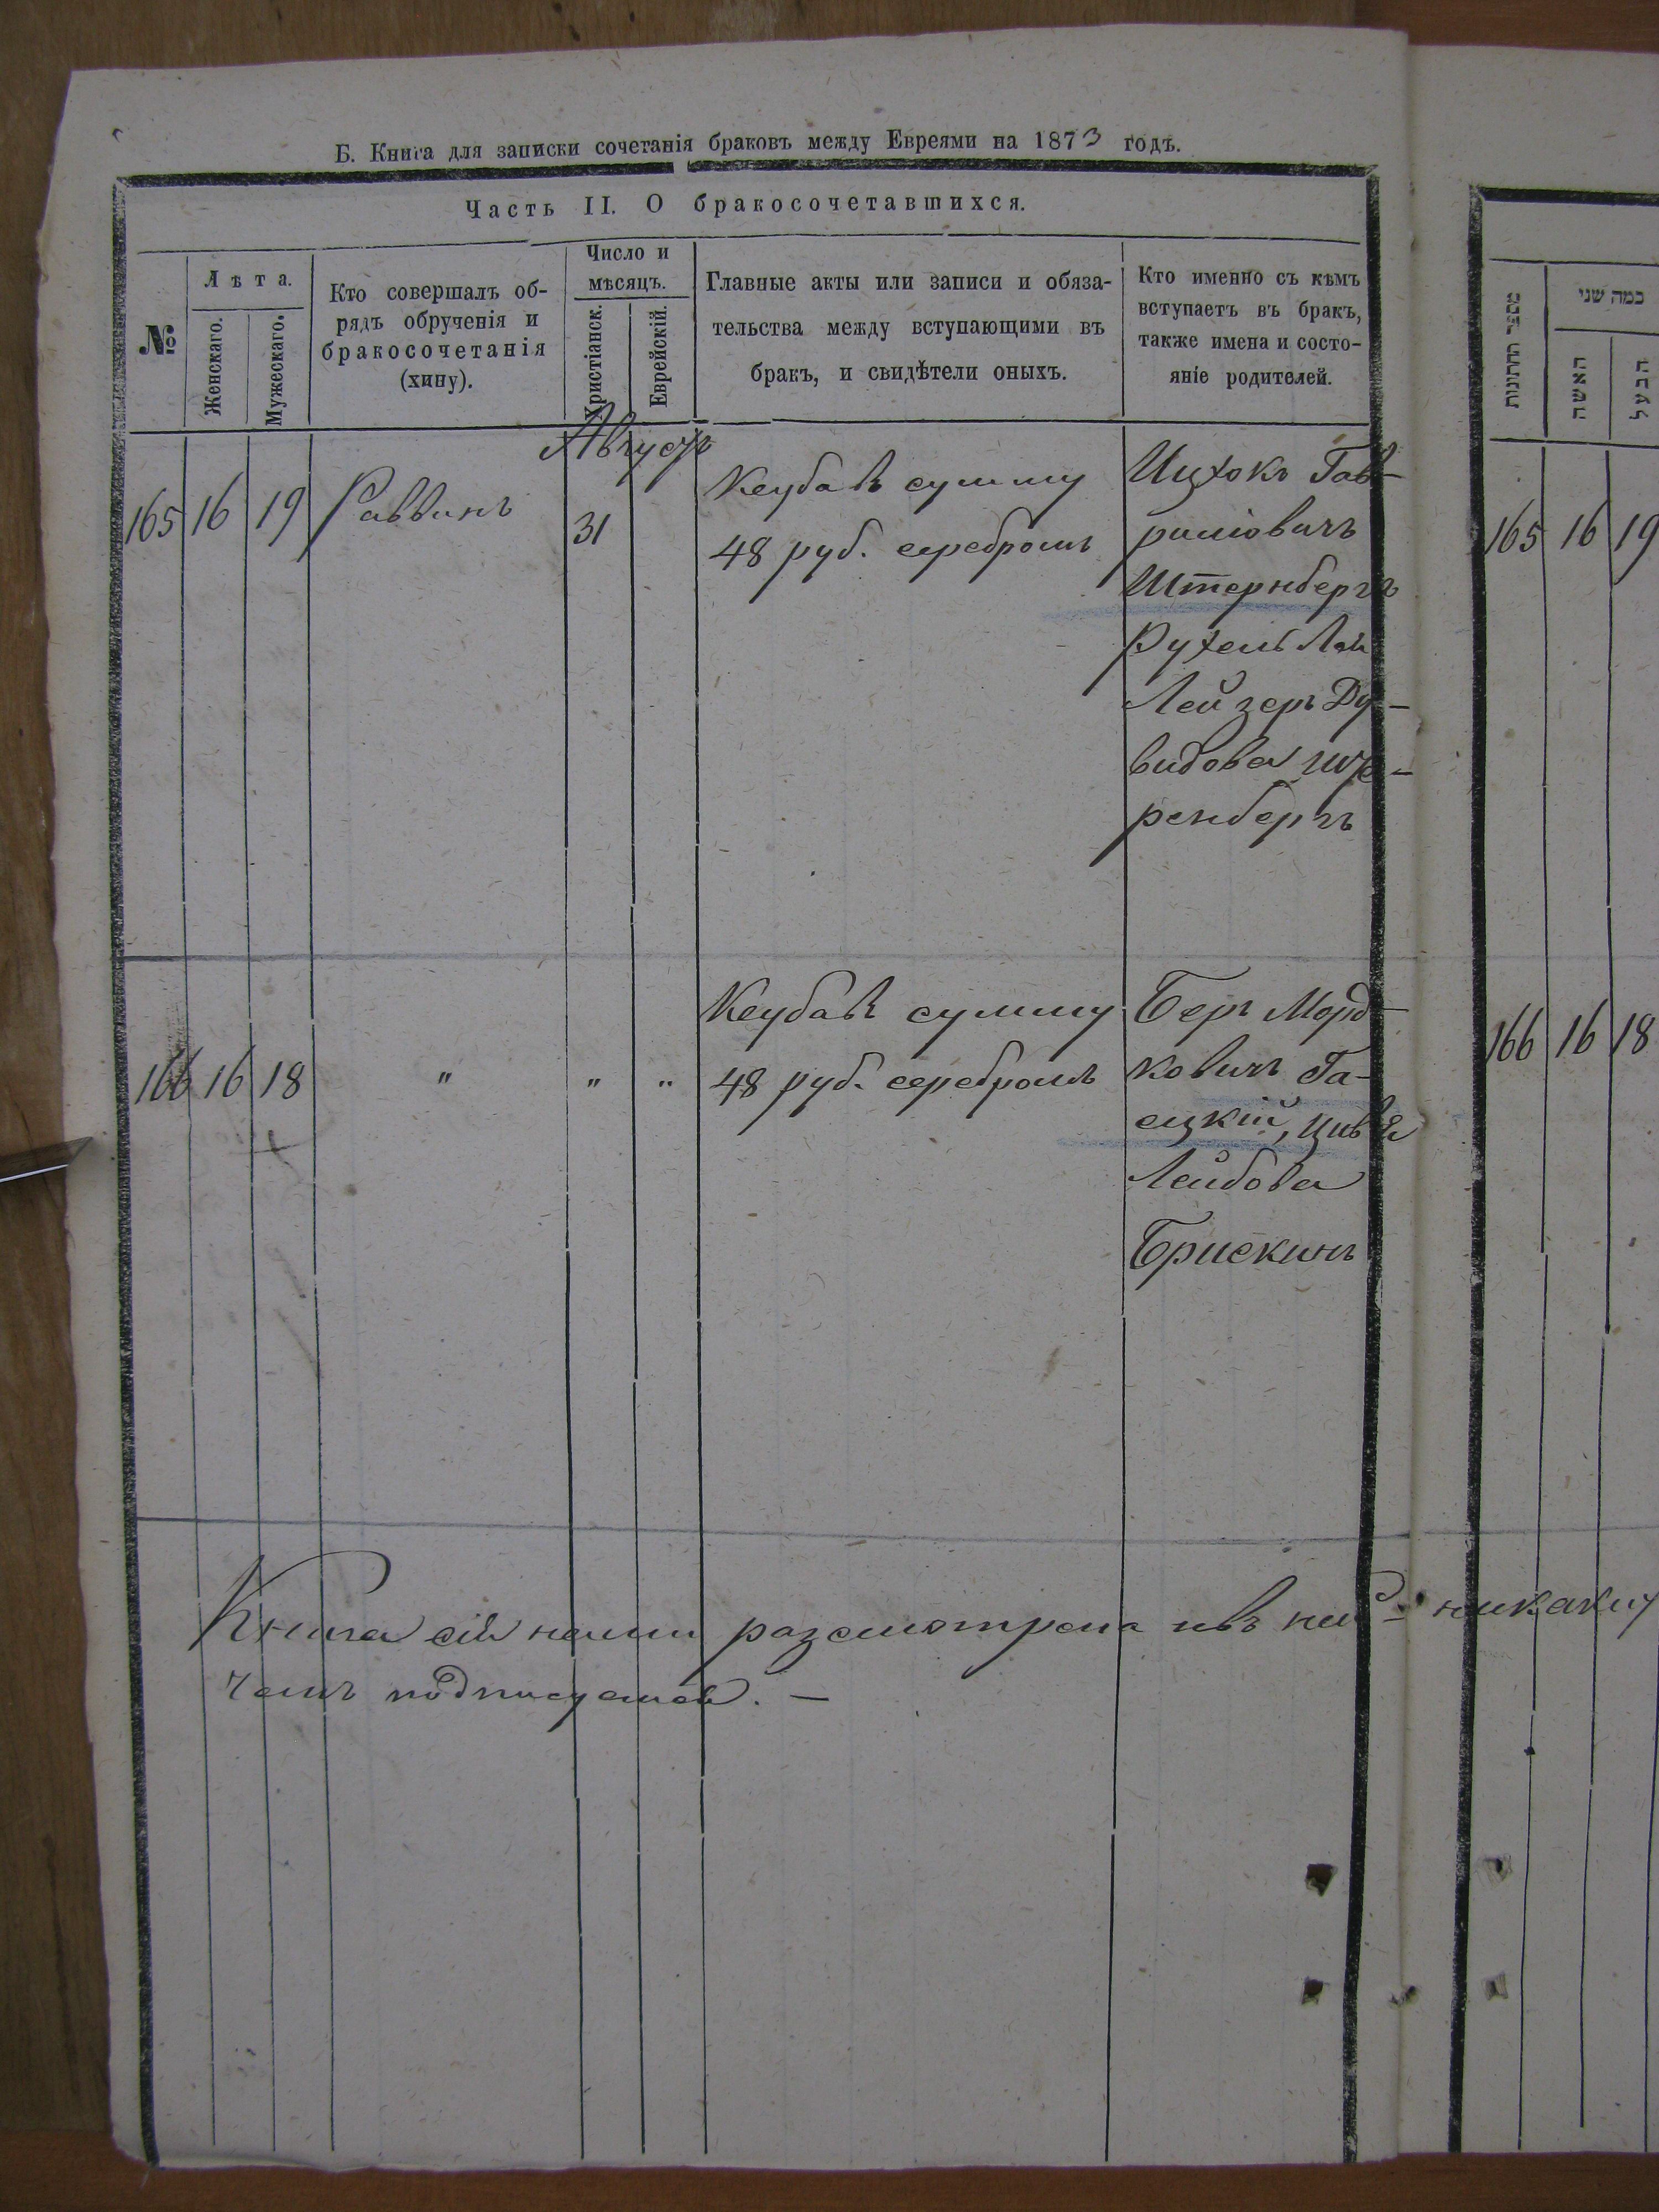 Б. Книга для записки сочетанія браковъ между Евреями на 1873 годъ.
Часть II. О бракосочетавшихся.
№
Лѣта.
Женскаго.
Мужескаго.
Кто совершалъ об-
рядъ обрученія и
бракосочетанія
(хипу).
Число и
мѣсяцъ.
Христіанск.
Еврейскій.
Главные акты или записи и обяза-
тельства между вступающими въ
бракъ, и свидѣтели оныхъ.
Кто именно съ кѣмъ
вступаетъ въ бракъ,
также имена и состо-
яніе родителей.
Августъ
165 16 19 Раввинъ 31
Ксуба въ сумму
48 руб. серебромъ
Ицхокъ Гав-
риловичъ
Штернбергъ
Рухель Лая
Лейзеръ Ду-
видова Ште-
ренбергъ
166 16 18 " " "
Ксуба въ сумму
48 руб. серебромъ
Беръ Морд-
ковичъ Га-
ецкій, Цивья
Лейбова
Брискинъ
Книга сія нами разсмотрена и въ ней никаких
чемъ подписуемся. —
מספר החתונות
כמה שני
האשה
הבעל
165 16 19
166 16 18